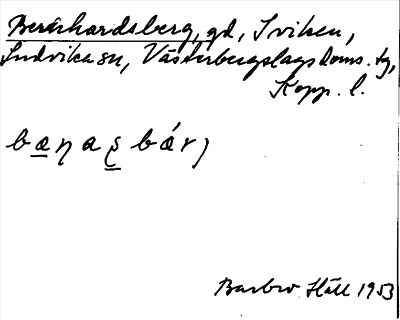 Bernhardsberg, gd, Sviken,
Ludvika sn, Västerbergslags Doms. tg,
Kopp. l.
Barbro Häll 1953